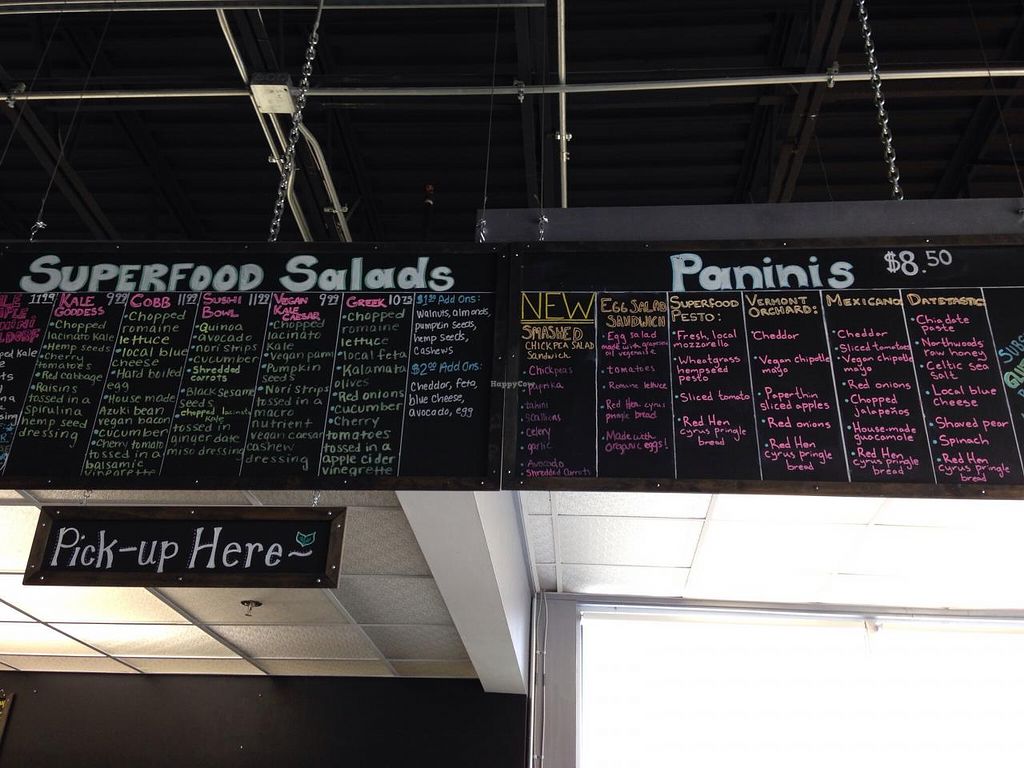 SUPERFOOD Salads
11.99
KALE GODDESS 9.99
• Chopped
lacinato Kale
• Hemp seeds
• Cherry
tomatoes
• Red cabbage
• Raisins
tossed in a
spirulina
hemp seed
dressing
COBB 11.99
• Chopped
romaine
lettuce
• local blue
cheese
• Hard boiled
egg
• House made
Azuki bean
vegan bacon
• cucumber
• Cherry tomato
tossed in a
balsamic
vinaigrette
SUSHI BOWL 11.99
• Quinoa
• avocado
• nori strips
• cucumber
• Shredded
carrots
• Black sesame
seeds
• chopped lacinato
tossed in
ginger date
miso dressing
VEGAN KALE CAESAR 9.99
• Chopped
lacinato
Kale
• Vegan parm
• Pumpkin
seeds
• Nori Strips
tossed in a
macro
nutrient
vegan caesar
cashew
dressing
GREEK 10.75
• chopped
romaine
lettuce
• local feta
• Kalamata
olives
• Red onions
• Cucumber
• Cherry
tomatoes
tossed in a
apple cider
vinegrette
Add Ons:
Walnuts, almonds,
pumpkin seeds,
hemp seeds,
cashews
Add Ons:
Cheddar, feta,
blue cheese,
avocado, egg
Paninis $8.50
NEW
SMASHED
CHICKPEA SALAD
Sandwich
• Chickpeas
• Paprika
• tahini
• Scallions
• Celery
• garlic
• Avocado
• Shredded Carrots
EGG SALAD
SANDWICH
• Egg salad
made with grapeseed
oil vegenaise
• tomatoes
• Romaine lettuce
• Red Hen cyrus
pringle bread
• Made with
organic eggs!
SUPERFOOD
PESTO:
• Fresh, local
mozzarella
• Wheatgrass
hempseed
pesto
• Sliced tomato
• Red Hen
cyrus pringle
bread
VERMONT
ORCHARD:
• Cheddar
• Vegan chipotle
mayo
• Paperthin
sliced apples
• Red onions
• Red Hen
cyrus pringle
bread
MEXICANO
• Cheddar
• Sliced tomatoes
• Vegan chipotle
mayo
• Red onions
• Chopped
jalapeños
• House-made
guacamole
• Red Hen
cyrus pringle
bread
DATETASTIC
• Chia date
paste
• Northwoods
raw honey
• Celtic sea
salt
• Local blue
Cheese
• Shaved pear
• Spinach
• Red Hen
Cyrus pringle
bread
HappyCow
Pick-up Here~